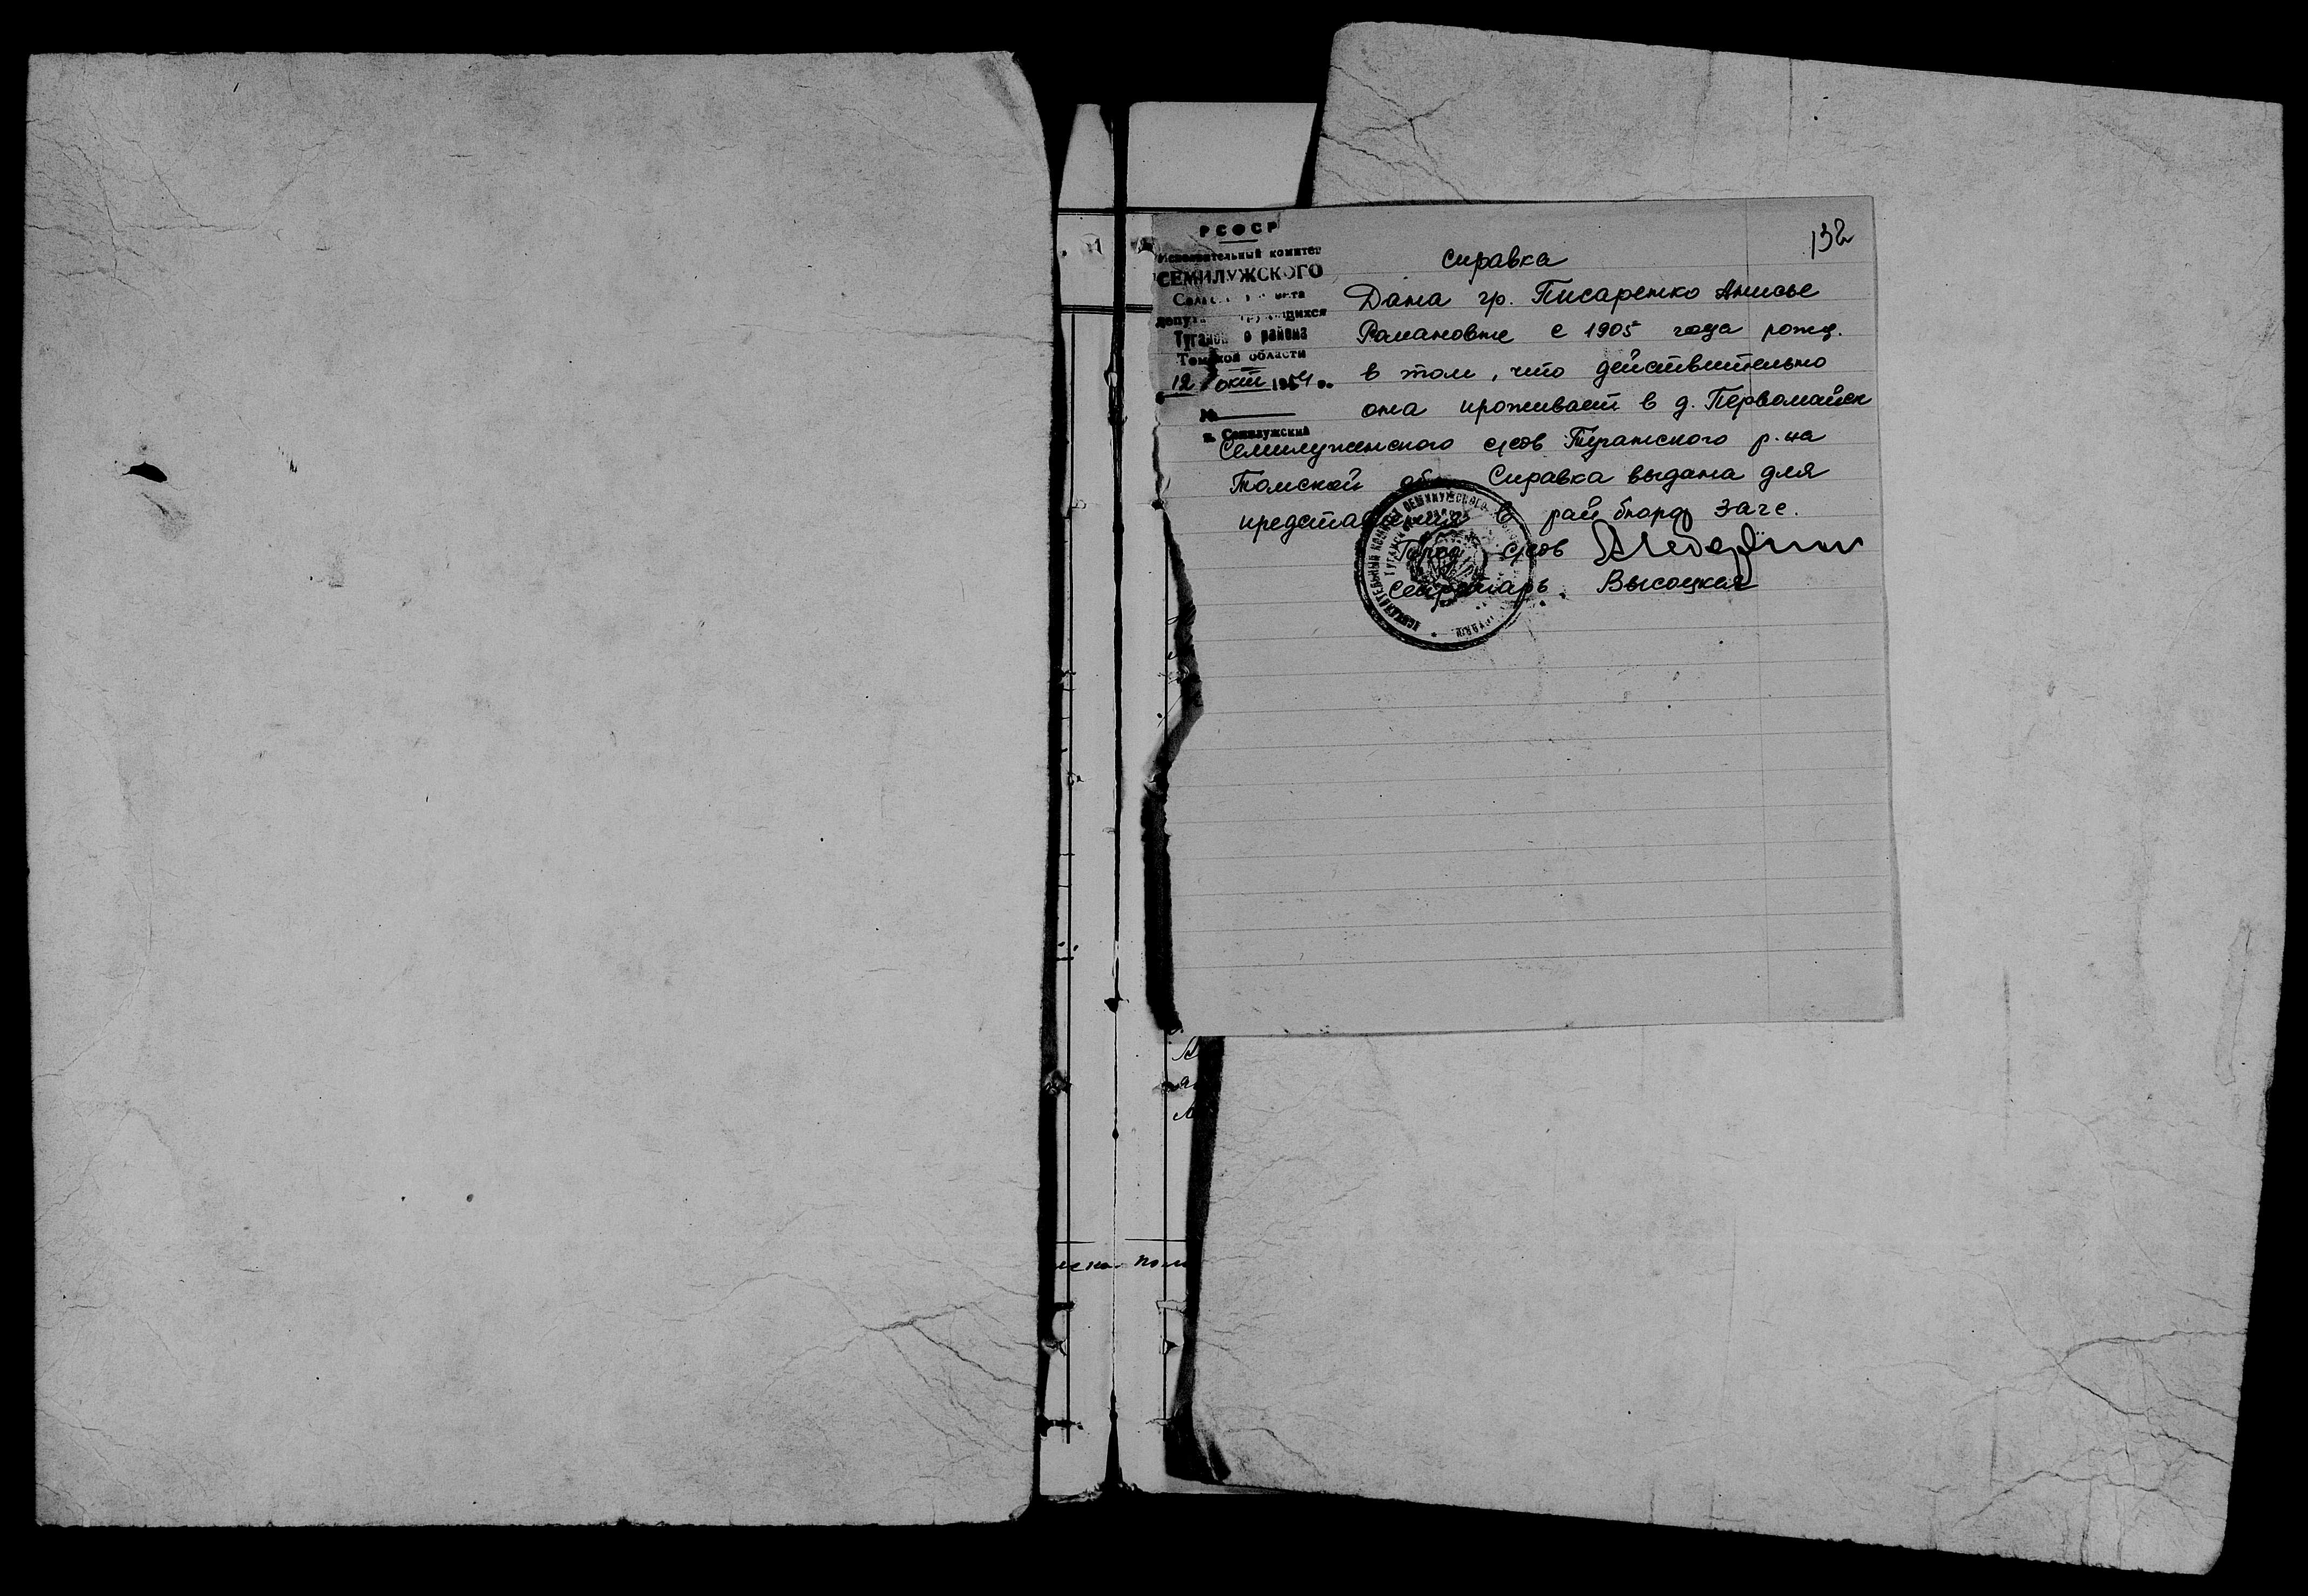 132
РСФСР
Исполнительный комитет
СЕМИЛУЖСКОГО
Томской области
12 окт 1954 г.
№
п. Семилужский
Справка
Дана гр. Писаренко Анисье
Романовне с 1905 года рожд.
в том, что действительно
она проживает в д. Первомайск
Семилуженского с/сов Туганского р-на
Томской об. Справка выдана для
представления в рай бюро Загс.
с/сов
Секретарь. Высоцкая